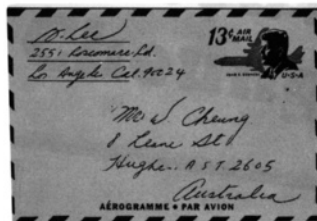 D. Lee
2551 Roscomare Rd.
Los Angeles Cal. 90024
13¢ AIR
MAIL
U·S·A
Mr. D. Cheung
8 Leane St
Hughes. A S T. 2605
Australia
AÉROGRAMME • PAR AVION